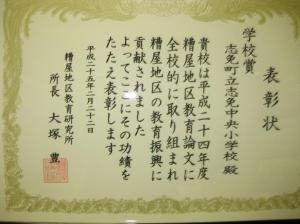 表彰状
学校賞
志免町立志免中央小学校 殿
貴校は平成二十四年度
糟屋地区教育論文に
全校的に取り組まれ
糟屋地区の教育振興に
貢献されました
よってここにその功績を
たたえ表彰します
平成二十五年二月二十二日
糟屋地区教育研究所
所長 大塚 豊